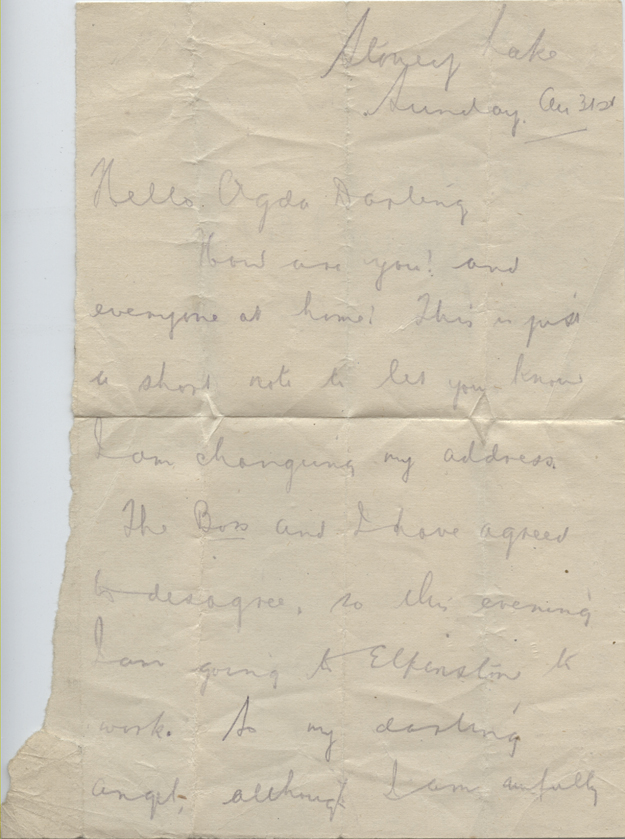 Stoney Lake
Sunday, Au 31st
Hello Agda Darling
How are you! and
everyone at home! This is just
a short note to let you know
I am changing my address.
The Boss and I have agreed
to desagree, so this evening
I am going to Elfinstone to
work. So my darling
angel, although I am awfully